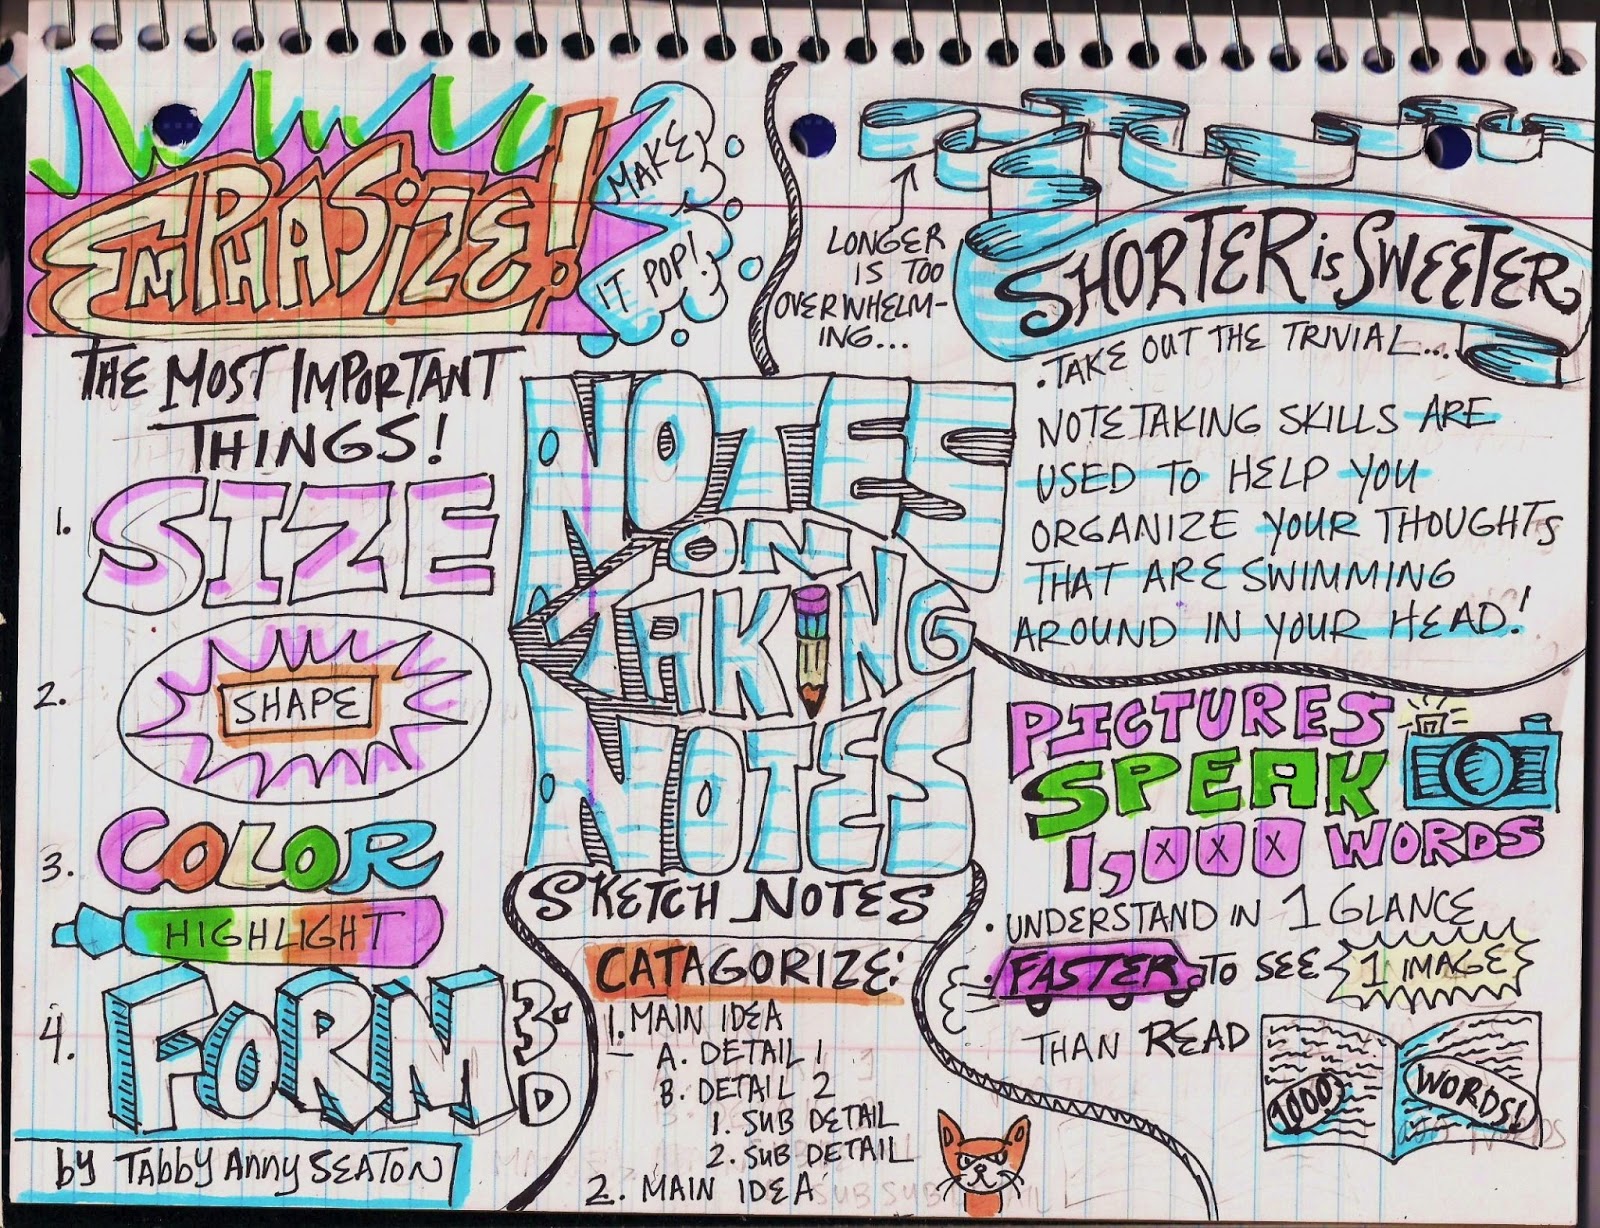 EMPHASIZE!
MAKE
IT POP!
THE MOST IMPORTANT
THINGS!
1. SIZE
2. SHAPE
3. COLOR
HIGHLIGHT
4. FORM 3-D
by TABBY ANNY SEATON
NOTES
ON
TAKING
NOTES
SKETCH NOTES
CATAGORIZE:
1. MAIN IDEA
A. DETAIL 1
B. DETAIL 2
1. SUB DETAIL
2. SUB DETAIL
2. MAIN IDEA
LONGER
IS TOO
OVERWHELM-
ING...
SHORTER is SWEETER
. TAKE OUT THE TRIVIAL...
NOTETAKING SKILLS ARE
USED TO HELP YOU
ORGANIZE YOUR THOUGHTS
THAT ARE SWIMMING
AROUND IN YOUR HEAD!
PICTURES
SPEAK
1,000 WORDS
. UNDERSTAND IN 1 GLANCE
. FASTER TO SEE 1 IMAGE
THAN READ
1000 WORDS!